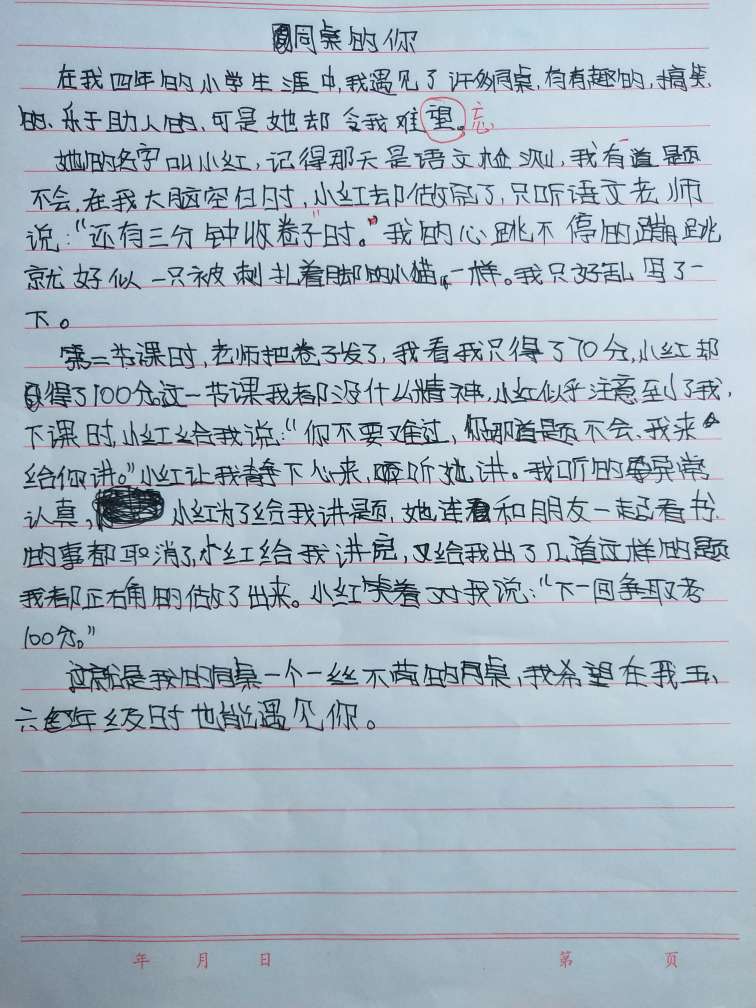 同桌的你
在我四年的小学生涯中,我遇见了许多同桌,有有趣的,搞笑
的、乐于助人的,可是她却令我难望。忘
她的名字叫小红,记得那天是语文检测,我有道题
不会,在我大脑空白时,小红却做完了,只听语文老师
说:“还有三分钟收卷子”时。”我的心跳不停的蹦跳
就好似一只被刺扎着脚的小猫一样。我只好乱写了一
下。
第二节课时,老师把卷子发了,我看我只得了70分,小红却
得了100分这一节课我都没什么精神,小红似乎注意到了我,
下课时,小红给我说:“你不要难过,你那道题不会,我来
给你讲。”小红让我静下心来,听她讲。我听的异常
认真,小红为了给我讲题,她连和朋友一起看书
的事都取消了,小红给我讲完,又给我出了几道这样的题
我都正确的做了出来。小红笑着对我说:“下一回争取考
100分。”
这就是我的同桌一个一丝不苟的同桌,我希望在我五、
六年级时也能遇见你。
年 月 日 第 页